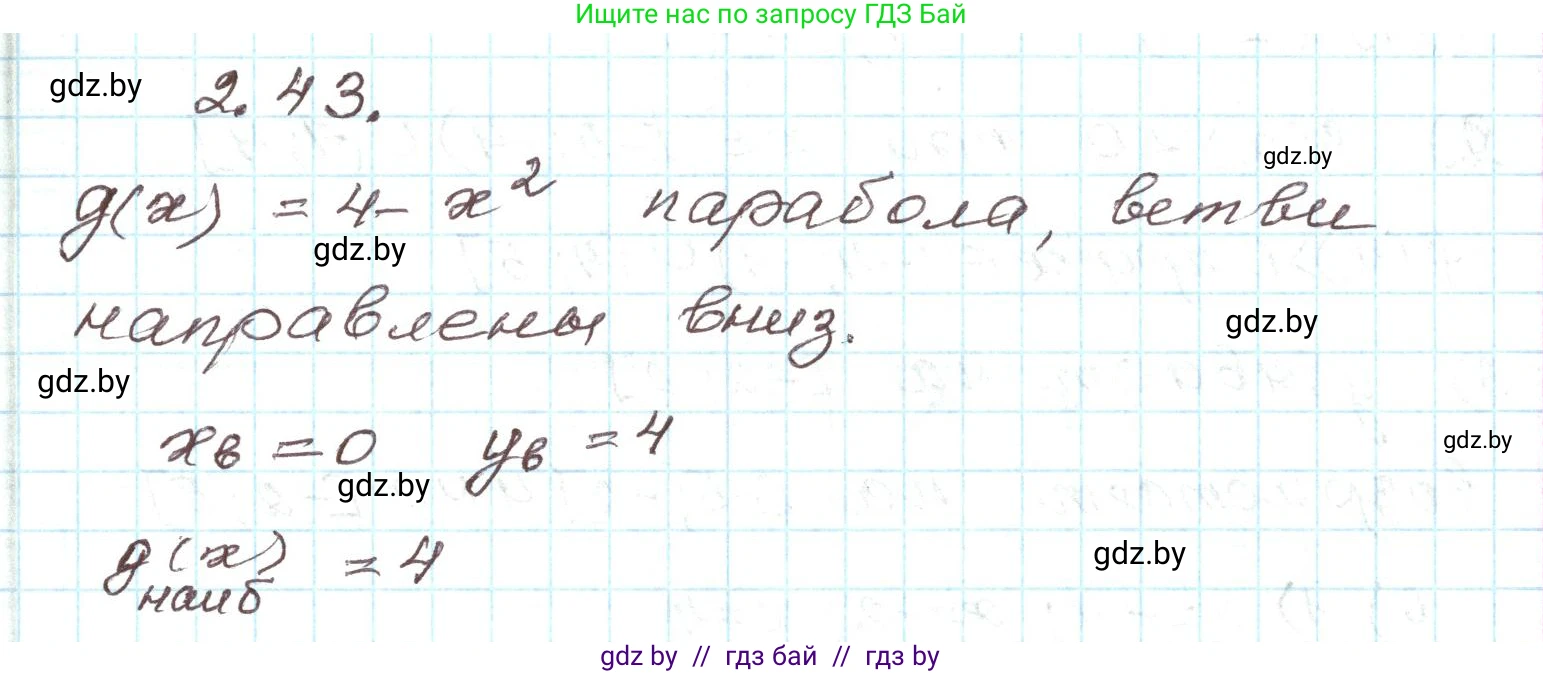 Ищите нас по запросу ГДЗ Бай
gdz.by 2.43.
gdz.by
g(x) = 4 - x² парабола, ветви
gdz.by
направлены вниз.
gdz.by
gdz.by
xв = 0 yв = 4
gdz.by
gdz.by
g(x) = 4
наиб
gdz.by
gdz by // гдз бай // гдз by